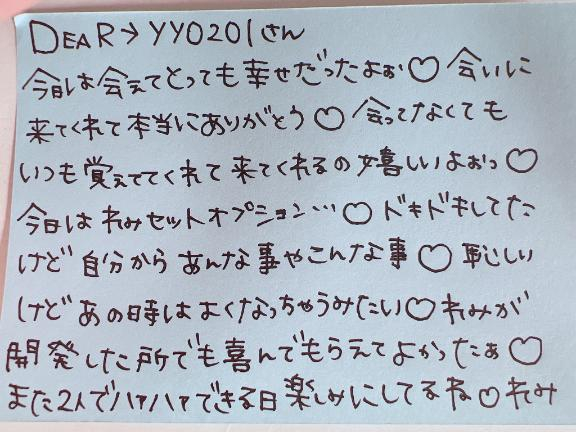 DEAR→YY0201さん
今日は会えてとっても幸せだったよぉ♡会いに
来てくれて本当にありがとう♡会ってなくても
いつも覚えててくれて来てくれるの嬉しいよぉっ♡
今日はれみセットオプション…♡ドキドキしてた
けど自分からあんな事やこんな事♡恥しい
けどあの時はよくなっちゃうみたい♡れみが
開発した所でも喜んでもらえてよかったぁ♡
また2人でハァハァできる日楽しみにしてるね♡れみ